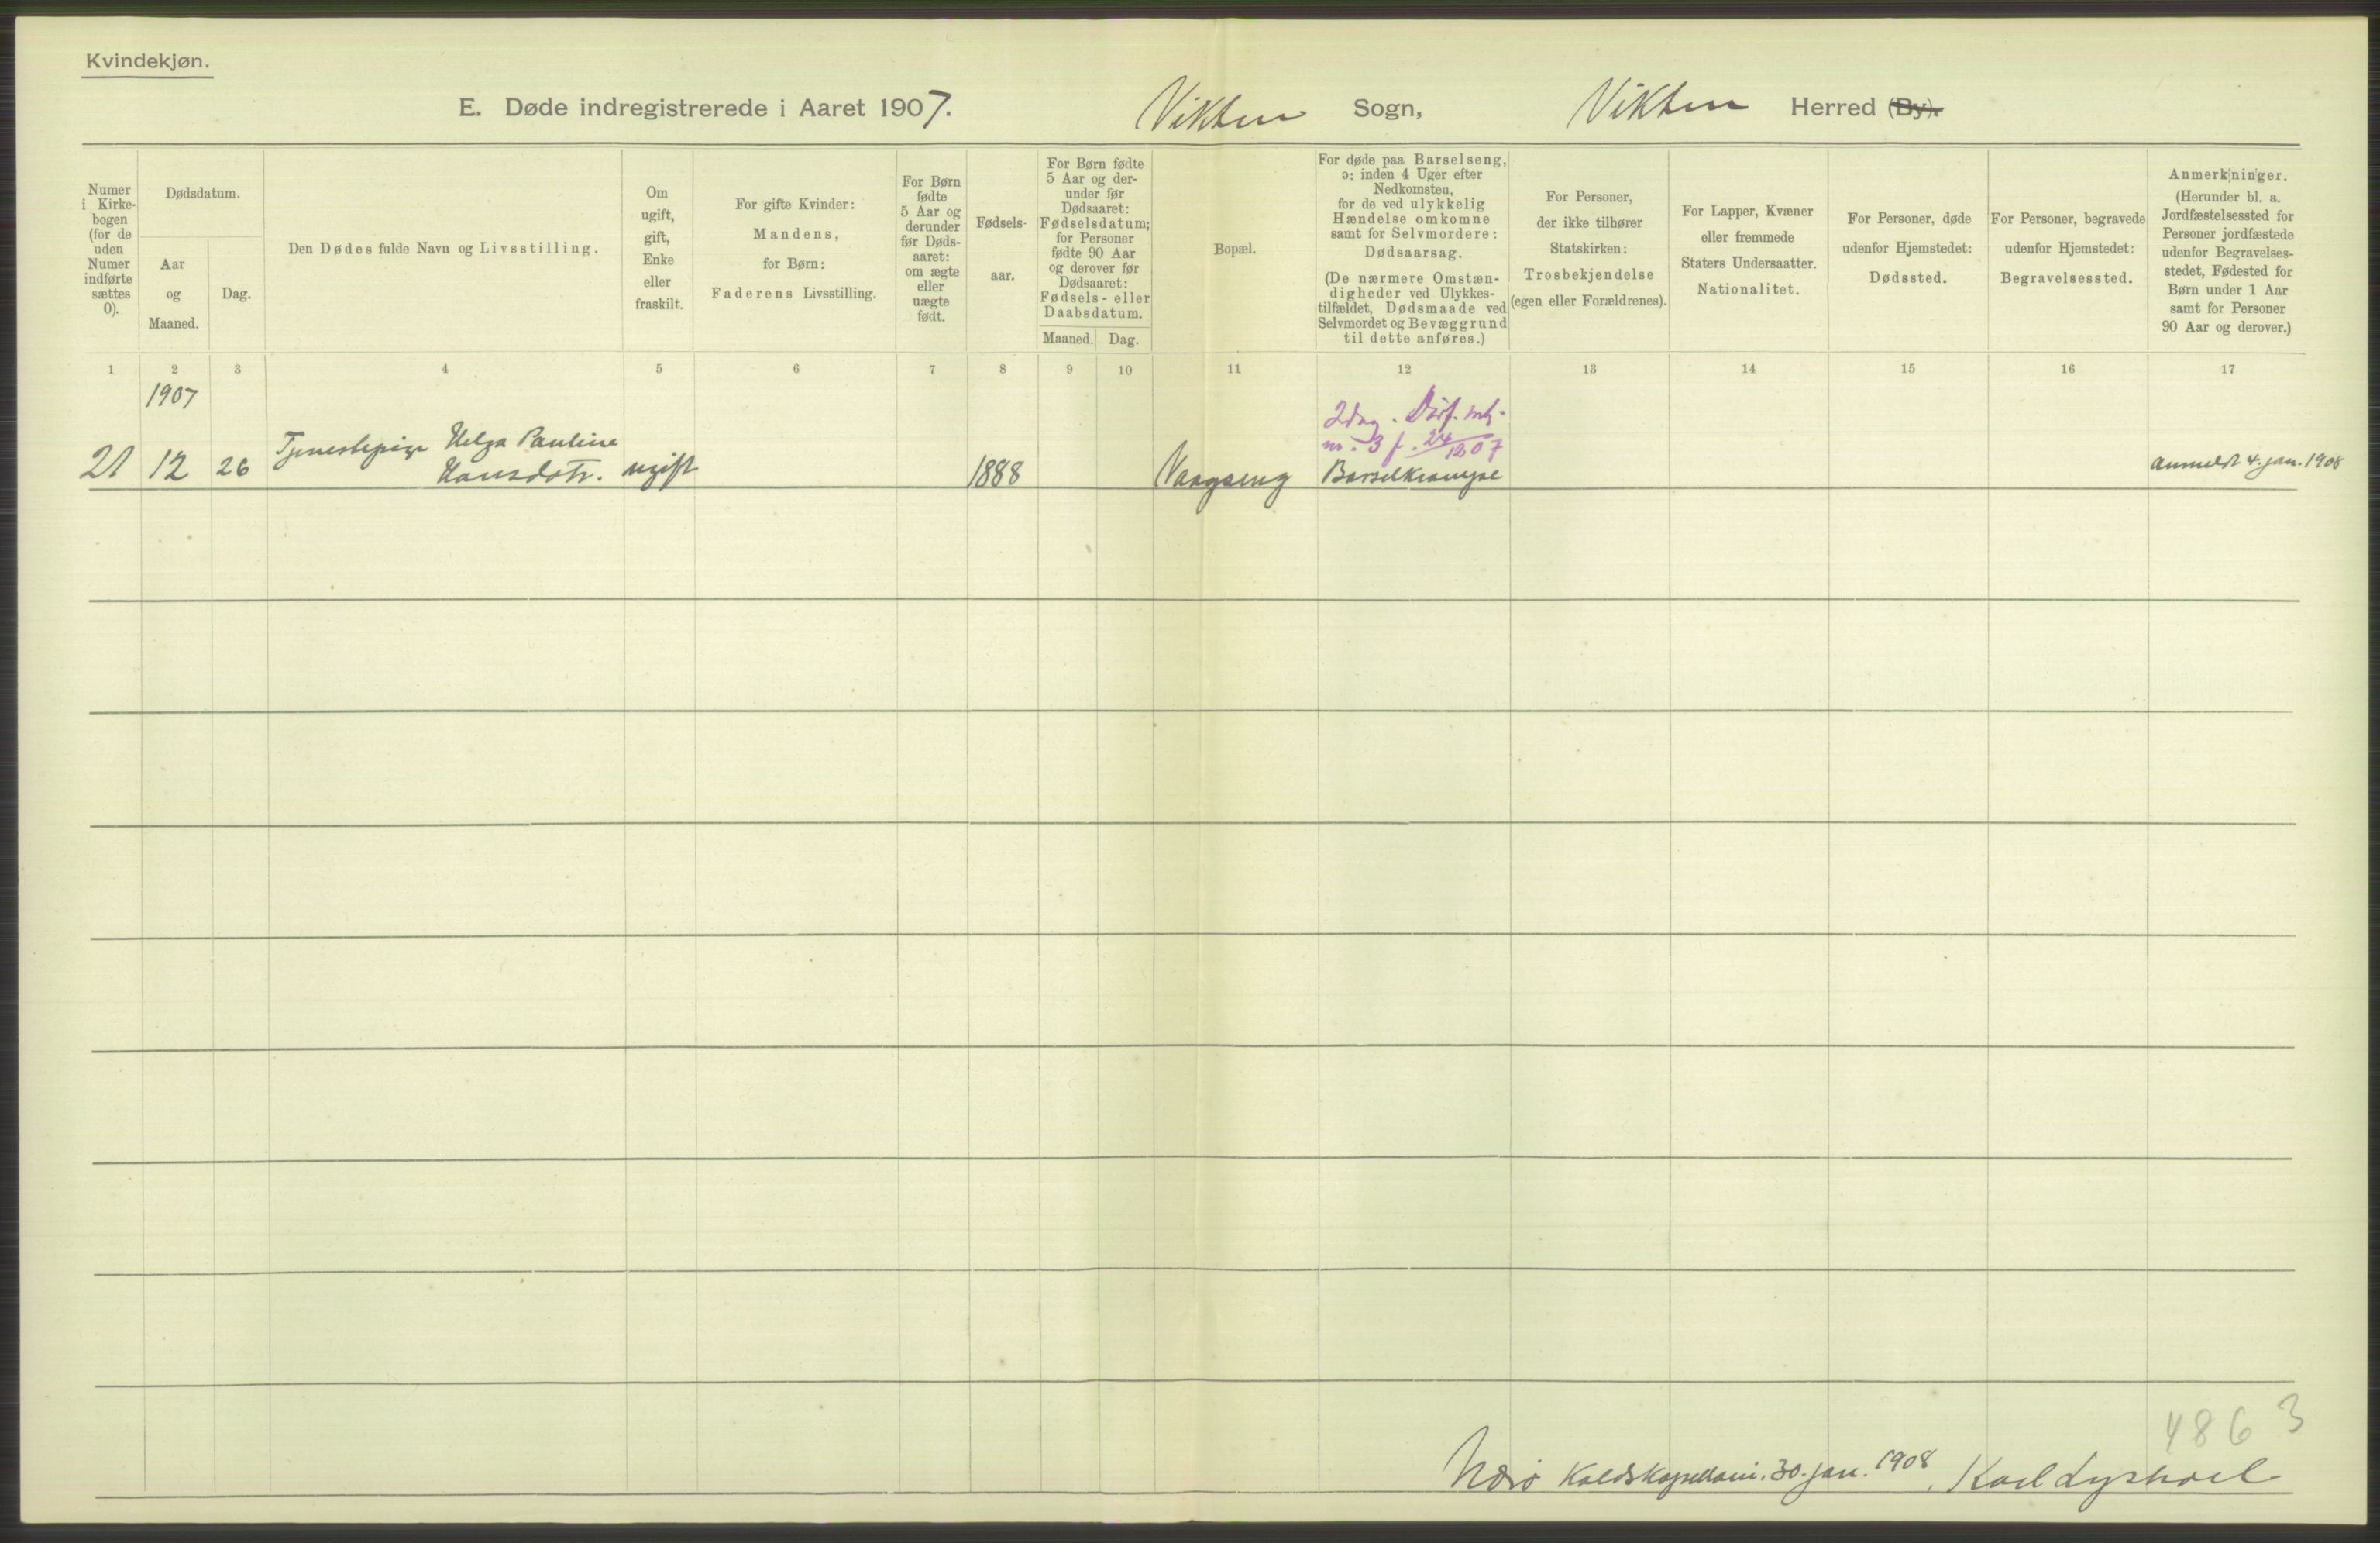 Kvindekjøn.
E. Døde indregistrerede i Aaret 1907. Vikten Sogn, Vikten Herred (By).
Numer
i Kirke-
bogen
(for de
uden
Numer
indførte
sættes
0).
Dødsdatum.
Aar
og
Maaned.
Dag.
Den Dødes fulde Navn og Livsstilling.
Om
ugift,
gift,
Enke
eller
fraskilt.
For gifte Kvinder:
Mandens,
for Børn:
Faderens Livsstilling.
For Børn
fødte
5 Aar og
derunder
før Døds-
aaret:
om ægte
eller
uægte
født.
Fødsels-
aar.
For Børn fødte
5 Aar og der-
under før
Dødsaaret:
Fødselsdatum;
for Personer
fødte 90 Aar
og derover før
Dødsaaret:
Fødsels- eller
Daabsdatum.
Maaned. Dag.
Bopæl.
For døde paa Barselseng,
ɔ: inden 4 Uger efter
Nedkomsten,
for de ved ulykkelig
Hændelse omkomne
samt for Selvmordere:
Dødsaarsag.
(De nærmere Omstæn-
digheder ved Ulykkes-
tilfældet, Dødsmaade ved
Selvmordet og Bevæggrund
til dette anføres.)
For Personer,
der ikke tilhører
Statskirken:
Trosbekjendelse
(egen eller Forældrenes).
For Lapper, Kvæner
eller fremmede
Staters Undersaatter.
Nationalitet.
For Personer, døde
udenfor Hjemstedet:
Dødssted.
For Personer, begravede
udenfor Hjemstedet:
Begravelsessted.
Anmerkninger.
(Herunder bl. a.
Jordfæstelsessted for
Personer jordfæstede
udenfor Begravelses-
stedet, Fødested for
Børn under 1 Aar
samt for Personer
90 Aar og derover.)
1 2 3 4 5 6 7 8 9 10 11 12 13 14 15 16 17
1907
2 dag. Dødf.
nr. 3 f. 24/12 07
21 12 26 Tjenestepige Helga Pauline
Hansdatr. ugift 1888 Vaagseng Barselkrampe anmeldt 4. jan. 1908
4863
Nærø 30. jan. 1908, Karl Lyshoel